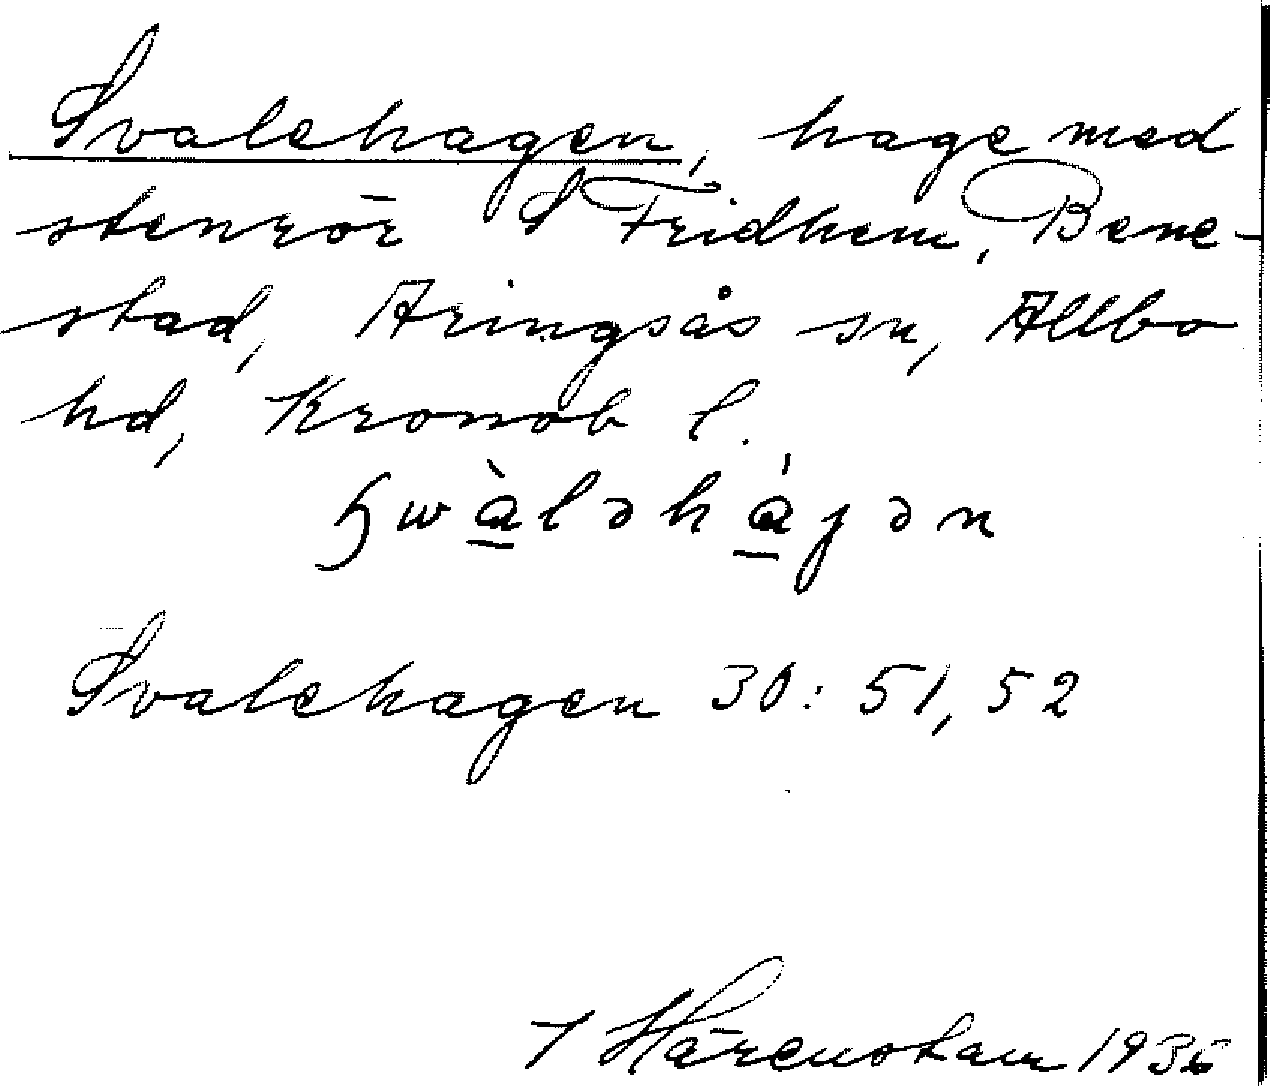 Svalehagen, hage med
stenrör S Fridhem, Bene-
stad, Aringsås sn, Allbo
hd, Kronob l.
Svalehagen 30: 51, 52
Härenstam 1936